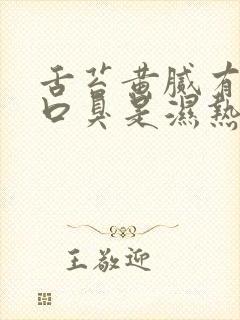 舌苔黄腻有
口臭是濕熱
王敬迎